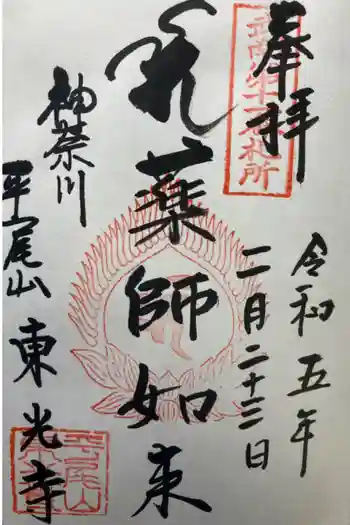 奉拝
令和五年
二月二十三日
薬師如来
神奈川
平尾山 東光寺
平尾山